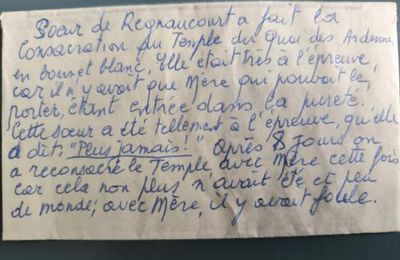 Soeur de Regnaucourt a fait la
Consacration du Temple du Quai des Ardenne
en bonnet blanc, Elle était très à l'épreuve,
car il n'y avait que Mère qui pouvait le
porter, étant entrée dans la pureté.
Cette soeur a été tellement à l'épreuve, qu'elle
a dit: "Plus jamais!" Après 8 jours on
a reconsacré le Temple avec Mère cette fois
car cela non plus n'avait été, et peu
de monde; avec Mère, il y avait foule.